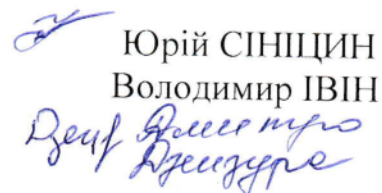 Юрій СІНІЦИН
Володимир ІВІН
Дмитро